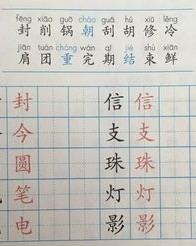 fēng xiāo guō cháo guā hú xiū lěng
封 削 锅 朝 刮 胡 修 冷
jiān tuán chóng wán qī jié shù xiān
肩 团 重 完 期 结 束 鲜
封 信 信
今 支 支
圆 珠 珠
笔 灯 灯
电 影 影